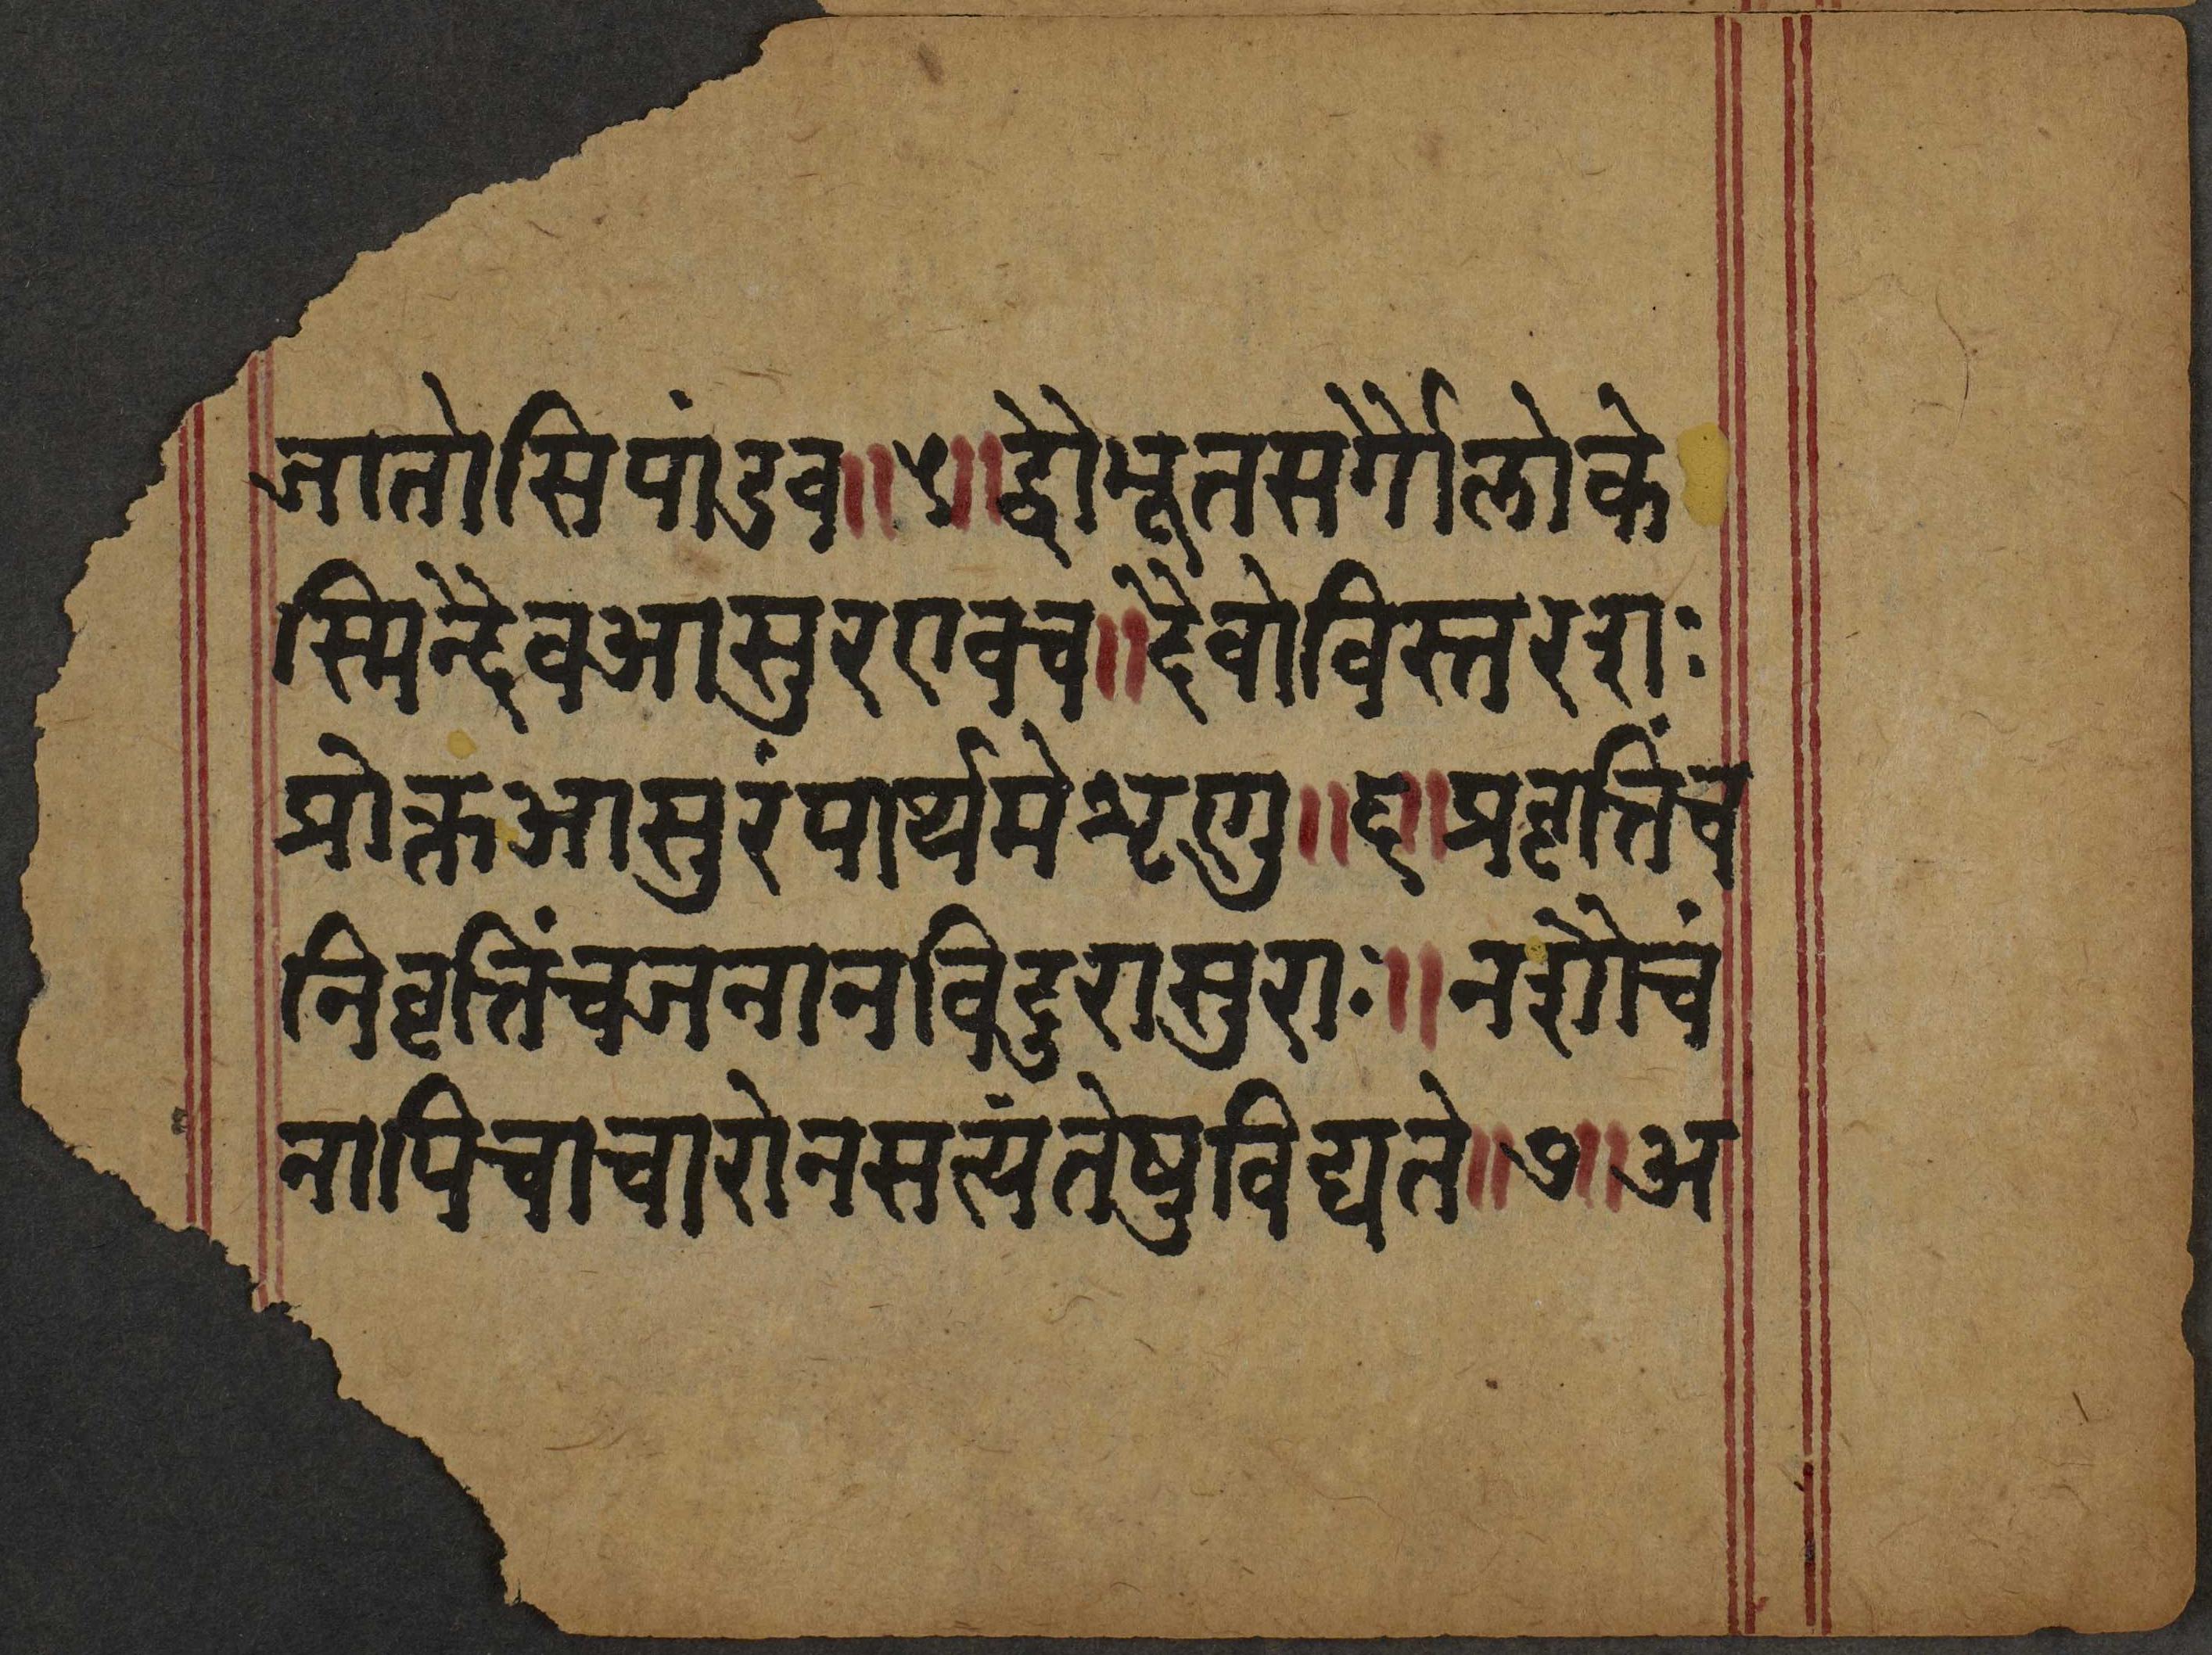 जातोसिपांडव॥५॥द्वौभूतसर्गौलोके
स्मिन्दैवआसुरएवच॥दैवोविस्तरशः
प्रोक्तआसुरंपार्थमेशृणु॥६॥प्रवृत्तिंच
निवृत्तिंचजनानविदुरासुराः॥नशौचं
नापिचाचारोनसत्यंतेषुविद्यते॥७॥अ